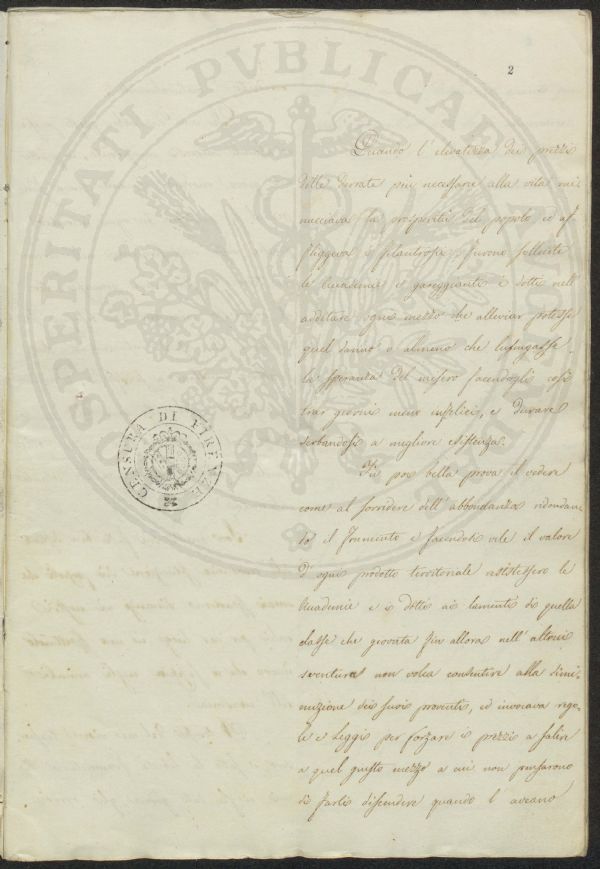 2
PROSPERITATI PVBLICAE AVGENDAE
CENSURA DI FIRENZE
Quando l'elevatezza dei prezzi
delle derrate più necessarie alla vita mi,
nacciava la prosperità del popolo ed af,
fliggeva i filantropi, furono sollecite
le Accademie e gareggianti i dotti nell'
additare ogni mezzo che alleviar potesse
quel danno o almeno che lusingasse
la speranza del misero facendogli cosi
trar giorni meno infelici, e durare
serbandosi a migliore esistenza.
Fù poi bella prova il vedere
come al sorridere dell'abbondanza ridondan,
do il Frumento e facendosi vile il valore
d'ogni prodotto territoriale assistessero le
Accademie e i dotti ai lamenti di quella
classe che giovata fin allora nell'altrui
sventura non volea consentire alla dimi,
nuzione dei suoi proventi, ed invocava rego,
le e Leggi per forzare i prezzi a salire
a quel giusto mezzo a cui non pensarono
di farli discendere quando l'aveano